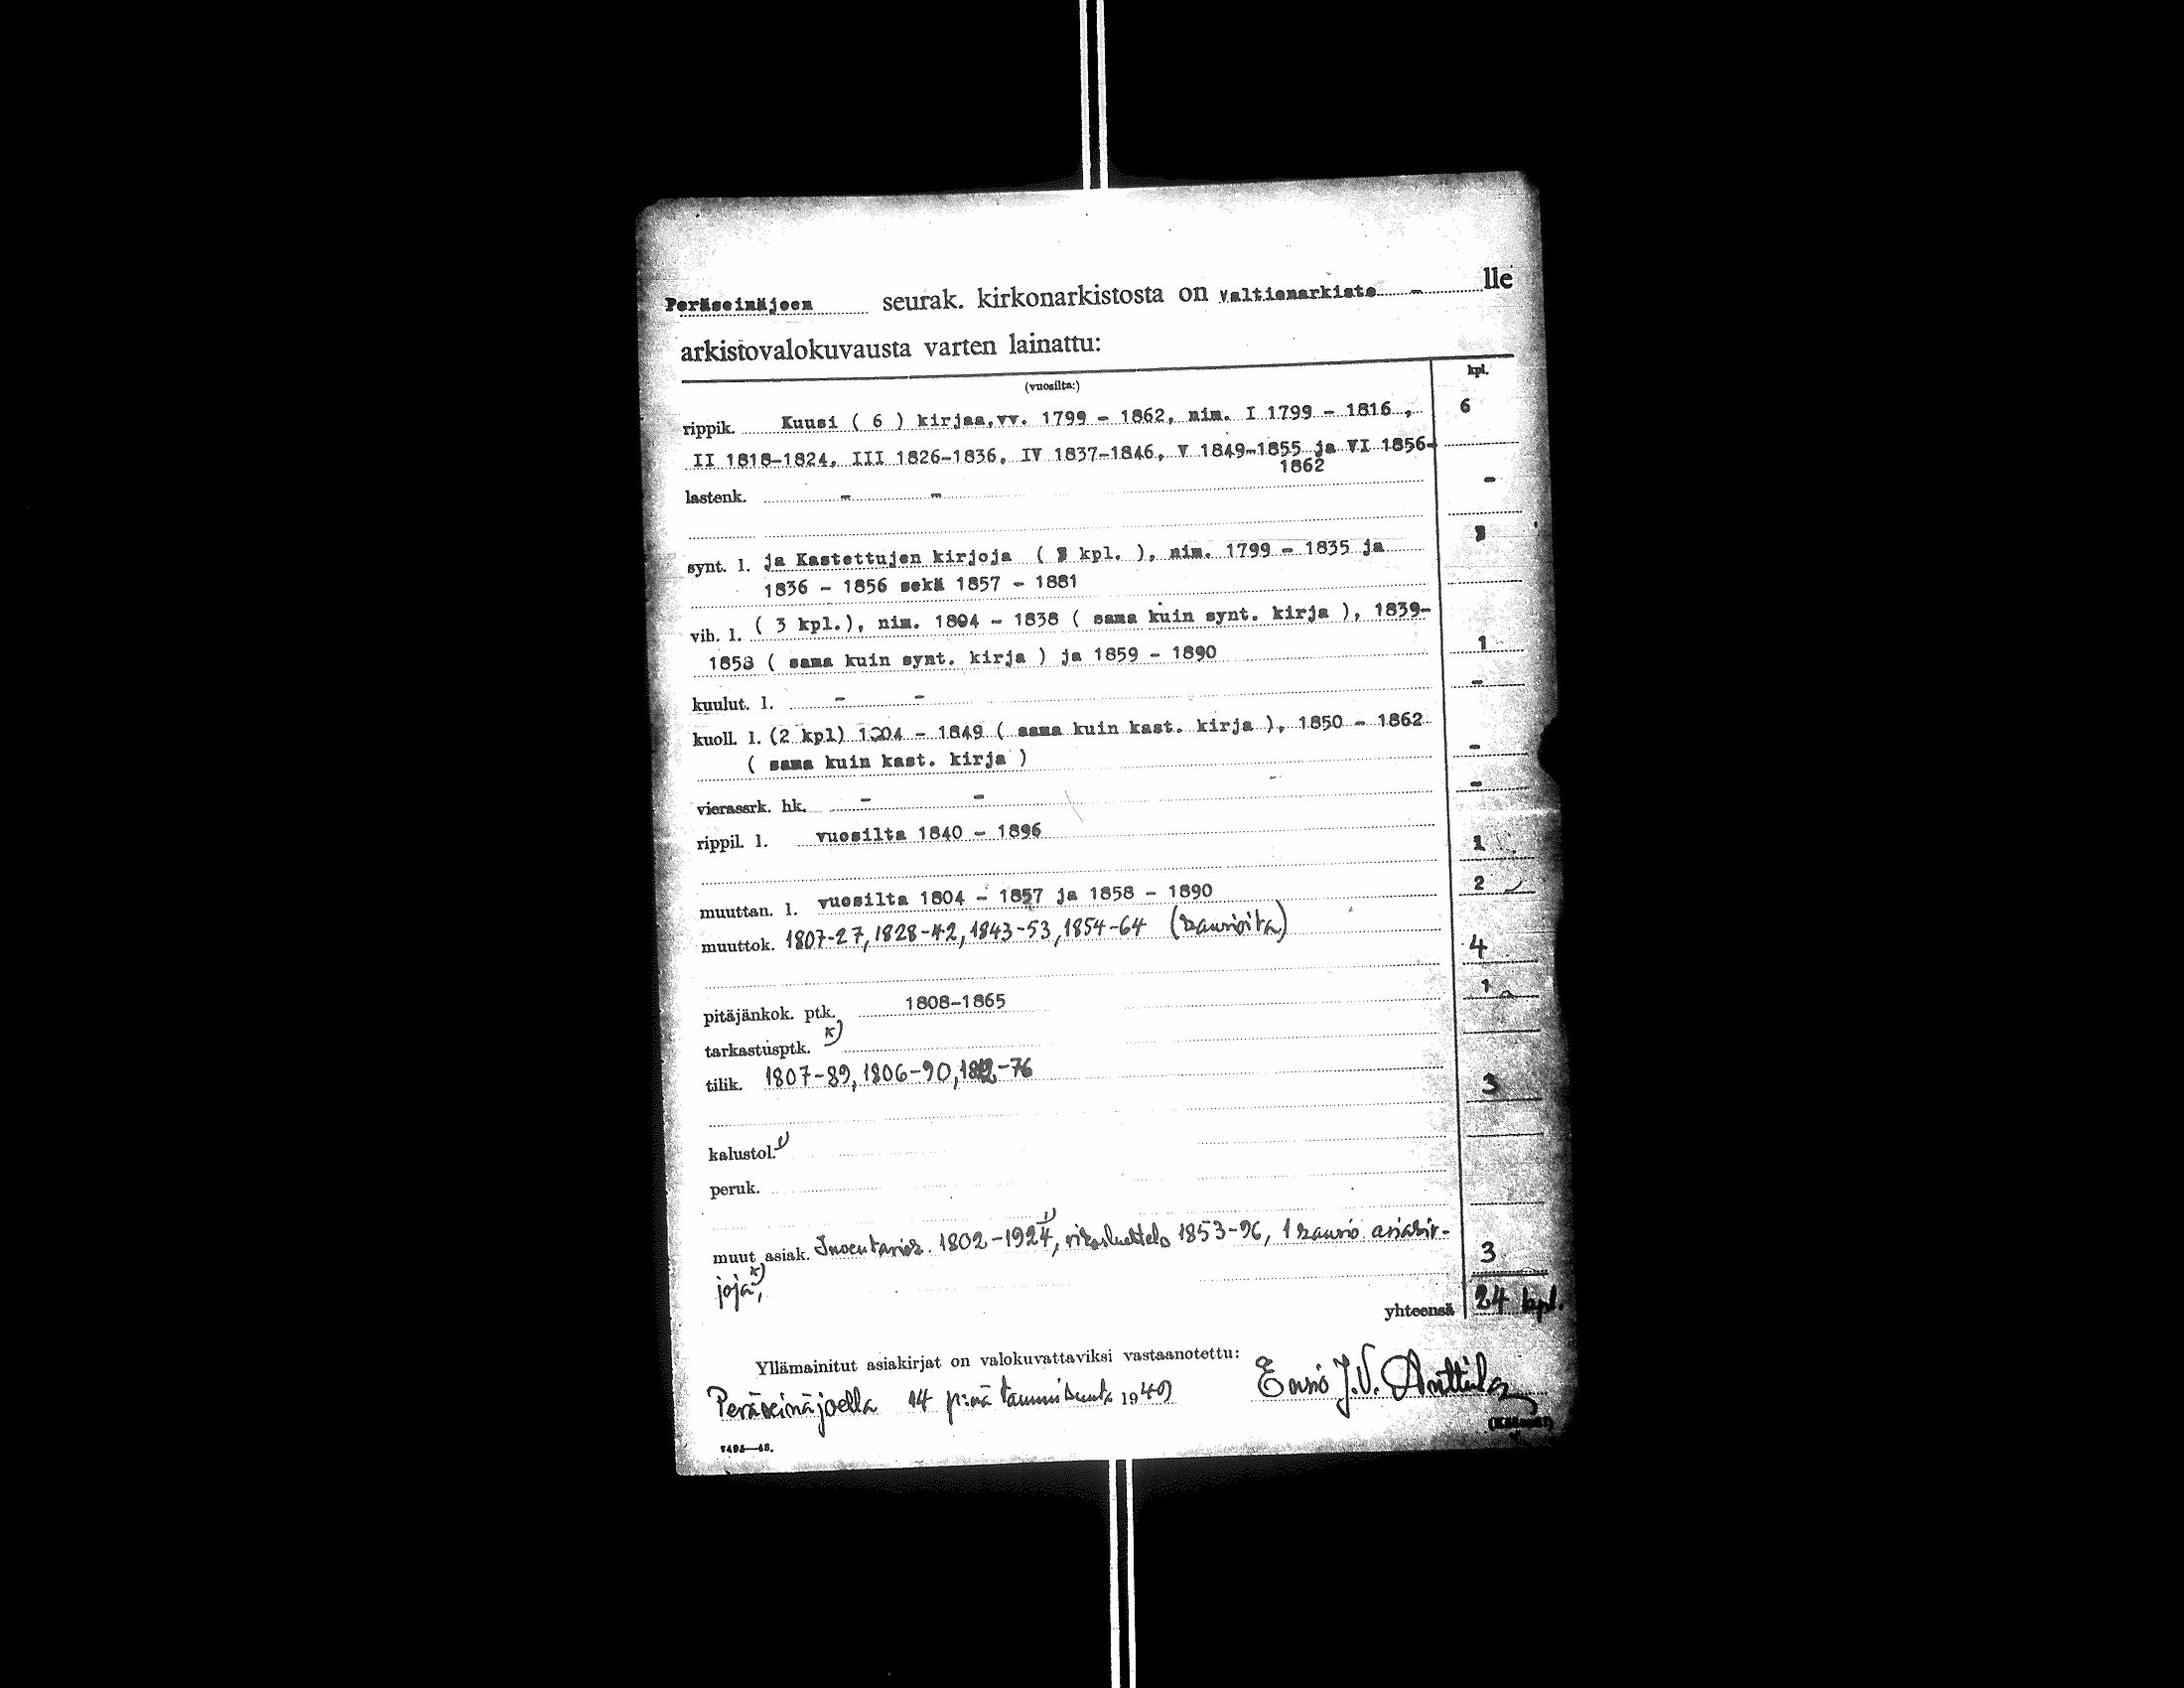 Peräseinäjoen seurak. kirkonarkistosta on valtionarkisto - lle
arkistovalokuvausta varten lainattu:
(vuosilta:) kpl.
rippik. Kuusi ( 6 ) kirjaa, vv. 1799 - 1862, nim. I 1799 - 1816, 6
II 1818-1824, III 1826-1836, IV 1837-1846, V 1849-1855 ja VI 1856-
1862
lastenk. - - -
synt. l. ja Kastettujen kirjoja ( 3 kpl. ), nim. 1799 - 1835 ja 3
1836 - 1856 sekä 1857 - 1881
vih. l. ( 3 kpl.), nim. 1804 - 1838 ( sama kuin synt. kirja ), 1839-
1858 ( sama kuin synt. kirja ) ja 1859 - 1890 1
kuulut. l. - - -
kuoll. l. (2 kpl) 1804 - 1849 ( sama kuin kast. kirja ), 1850 - 1862
( sama kuin kast. kirja ) -
vierassrk. hk. - - -
rippil. l. vuosilta 1840 - 1896 1
muuttan. l. vuosilta 1804 - 1857 ja 1858 - 1890 2
muuttok. 1807-27, 1828-42, 1843-53, 1854-64 (kansioita) 4
pitäjänkok. ptk. 1808-1865 1
tarkastusptk. x)
tilik. 1807-89, 1806-90, -76 3
kalustol. 1)
peruk.
muut asiak. Inventariok. 1802-1924 1), rikosluettelo 1853-96, 1 kansio asiakir- 3
joja x),
yhteensä 24 kpl.
Yllämainitut asiakirjat on valokuvattaviksi vastaanotettu:
Peräseinäjoella 14 p:nä tammikuuta 1949 Ensio J.V. Anttila
7495—48.